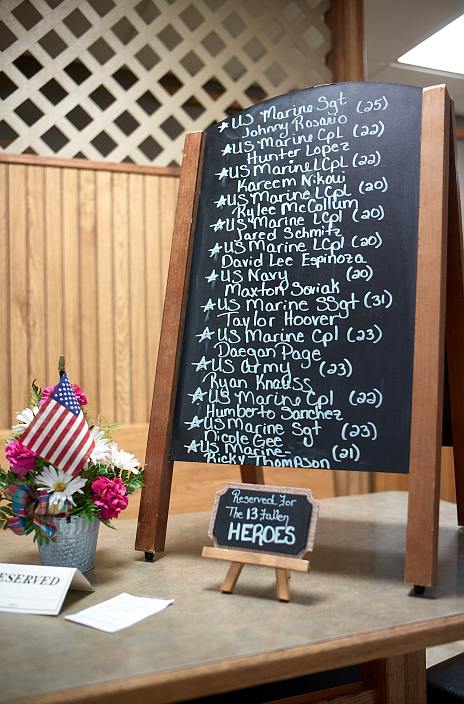 ★US Marine Sgt (25)
Johnny Rosario
★US Marine Cpl (22)
Hunter Lopez
★US Marine LCpl (22)
Kareem Nikoui
★US Marine LCpl (20)
Rylee McCollum
★US Marine LCpl (20)
Jared Schmitz
★US Marine LCpl (20)
David Lee Espinoza
★US Navy (20)
Maxton Soviak
★US Marine SSgt (31)
Taylor Hoover
★US Marine Cpl (23)
Daegan Page
★US Army (23)
Ryan Knauss
★US Marine Cpl (22)
Humberto Sanchez
★US Marine Sgt (23)
Nicole Gee
★US Marine- (21)
Ricky Thompson
Reserved For
The 13 Fallen
HEROES
ESERVED